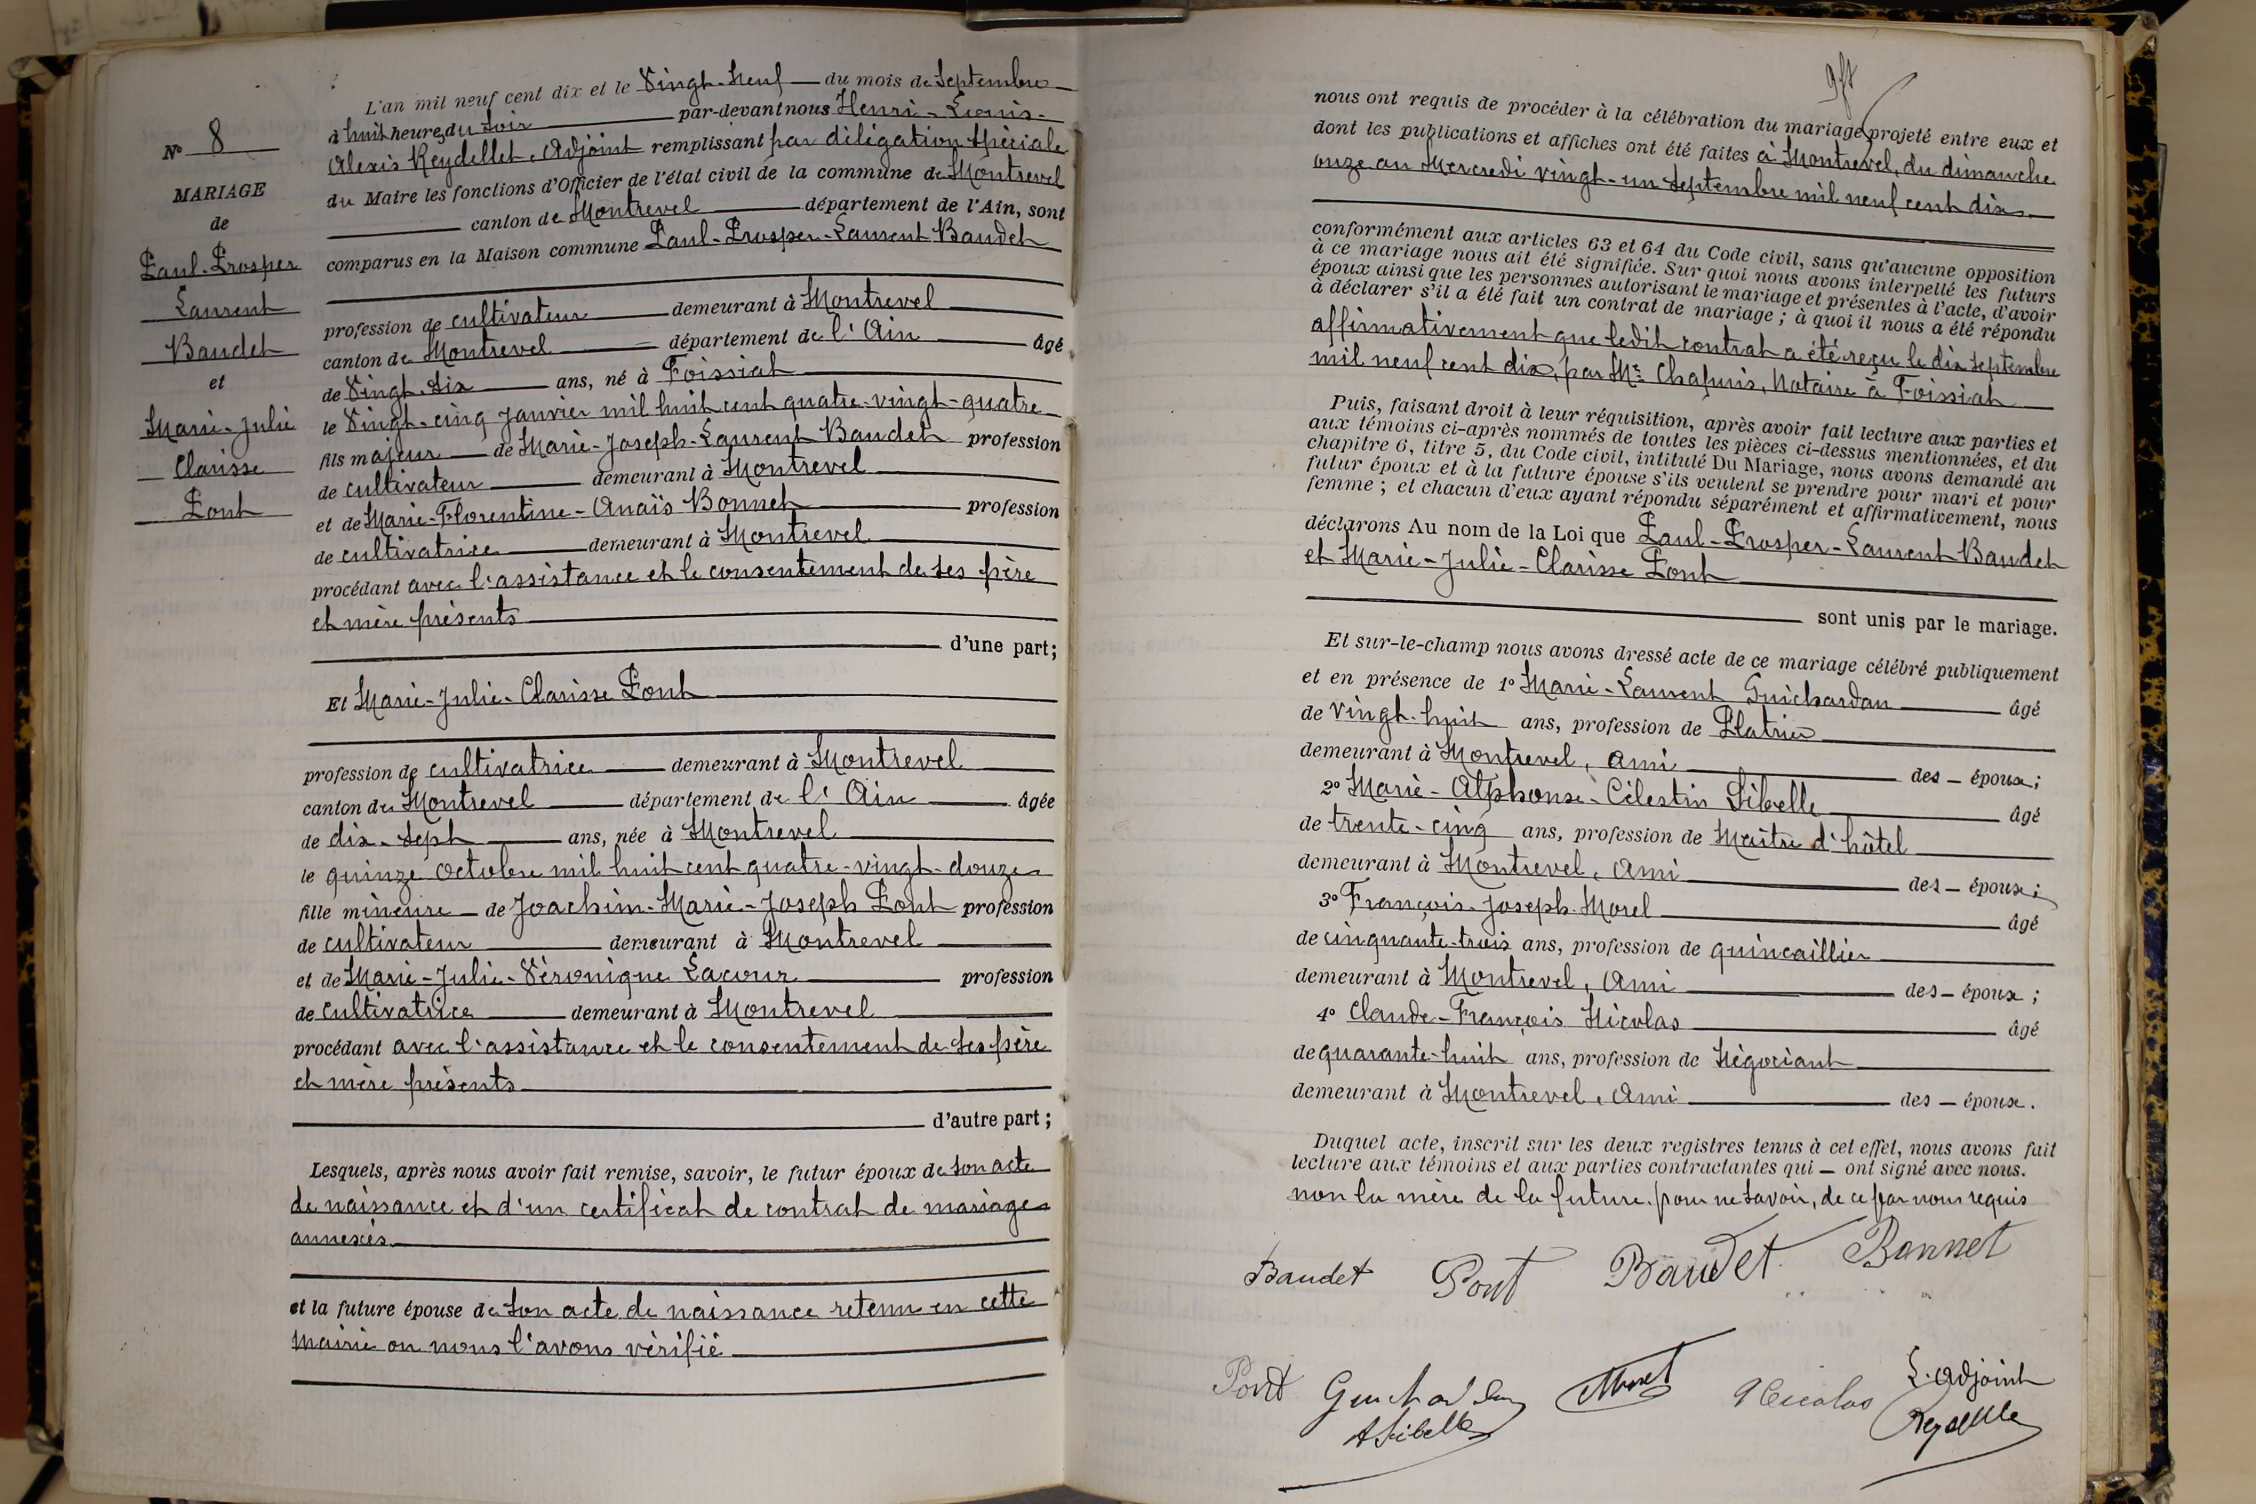 N° 8
MARIAGE
de
Paul-Prosper
Laurent
Baudet
et
Marie-Julie
Clarisse
Pont
L'an mil neuf cent dix et le Vingt-Neuf du mois de Septembre
à huit heures du Soir par-devant nous Henri-Louis-
Alexis Reydellet, Adjoint remplissant par délégation spéciale
du Maire les fonctions d'Officier de l'état civil de la commune de Montrevel
canton de Montrevel département de l'Ain, sont
comparus en la Maison commune Paul-Prosper-Laurent Baudet
profession de cultivateur demeurant à Montrevel
canton de Montrevel département de l'Ain âgé
de Vingt-six ans, né à Foissiat
le Vingt-cinq Janvier mil huit cent quatre-vingt-quatre
fils majeur de Marie-Joseph-Laurent Baudet profession
de cultivateur demeurant à Montrevel
et de Marie-Florentine-Anaïs Bonnet profession
de cultivatrice demeurant à Montrevel
procédant avec l'assistance et le consentement de ses père
et mère présents
d'une part;
Et Marie-Julie-Clarisse Pont
profession de cultivatrice demeurant à Montrevel
canton de Montrevel département de l'Ain âgée
de dix-sept ans, née à Montrevel
le quinze Octobre mil huit cent quatre-vingt-douze
fille mineure de Joachim-Marie-Joseph Pont profession
de cultivateur demeurant à Montrevel
et de Marie-Julie-Véronique Lacour profession
de cultivatrice demeurant à Montrevel
procédant avec l'assistance et le consentement de ses père
et mère présents
d'autre part;
Lesquels, après nous avoir fait remise, savoir, le futur époux de son acte
de naissance et d'un certificat de contrat de mariage
annexés
et la future épouse de son acte de naissance retenu en cette
Mairie ou nous l'avons vérifié
nous ont requis de procéder à la célébration du mariage projeté entre eux et
dont les publications et affiches ont été faites à Montrevel, du dimanche
onze au Mercredi vingt-un septembre mil neuf cent dix
conformément aux articles 63 et 64 du Code civil, sans qu'aucune opposition
à ce mariage nous ait été signifiée. Sur quoi nous avons interpellé les futurs
époux ainsi que les personnes autorisant le mariage et présentes à l'acte, d'avoir
à déclarer s'il a été fait un contrat de mariage; à quoi il nous a été répondu
affirmativement que ledit contrat a été reçu le dix septembre
mil neuf cent dix, par Me Chapuis, Notaire à Foissiat
Puis, faisant droit à leur réquisition, après avoir fait lecture aux parties et
aux témoins ci-après nommés de toutes les pièces ci-dessus mentionnées, et du
chapitre 6, titre 5, du Code civil, intitulé Du Mariage, nous avons demandé au
futur époux et à la future épouse s'ils veulent se prendre pour mari et pour
femme; et chacun d'eux ayant répondu séparément et affirmativement, nous
déclarons Au nom de la Loi que Paul-Prosper-Laurent Baudet
et Marie-Julie-Clarisse Pont
sont unis par le mariage.
Et sur-le-champ nous avons dressé acte de ce mariage célébré publiquement
et en présence de 1° Marie-Laurent Guichardan âgé
de vingt-huit ans, profession de Plâtrier
demeurant à Montrevel, ami des époux;
2° Marie-Alphonse-Célestin Sibelle âgé
de trente-cinq ans, profession de Maître d'hôtel
demeurant à Montrevel, ami des époux;
3° François-Joseph Morel âgé
de cinquante-trois ans, profession de quincaillier
demeurant à Montrevel, ami des époux;
4° Claude-François Nicolas âgé
de quarante-huit ans, profession de Négociant
demeurant à Montrevel, ami des époux.
Duquel acte, inscrit sur les deux registres tenus à cet effet, nous avons fait
lecture aux témoins et aux parties contractantes qui ont signé avec nous.
non la mère de la future, pour ne savoir, de ce par nous requis
Baudet Pont Baudet Bonnet
L'adjoint
Pont Guichardan Morel Nicolas Reydellet
A Sibelle